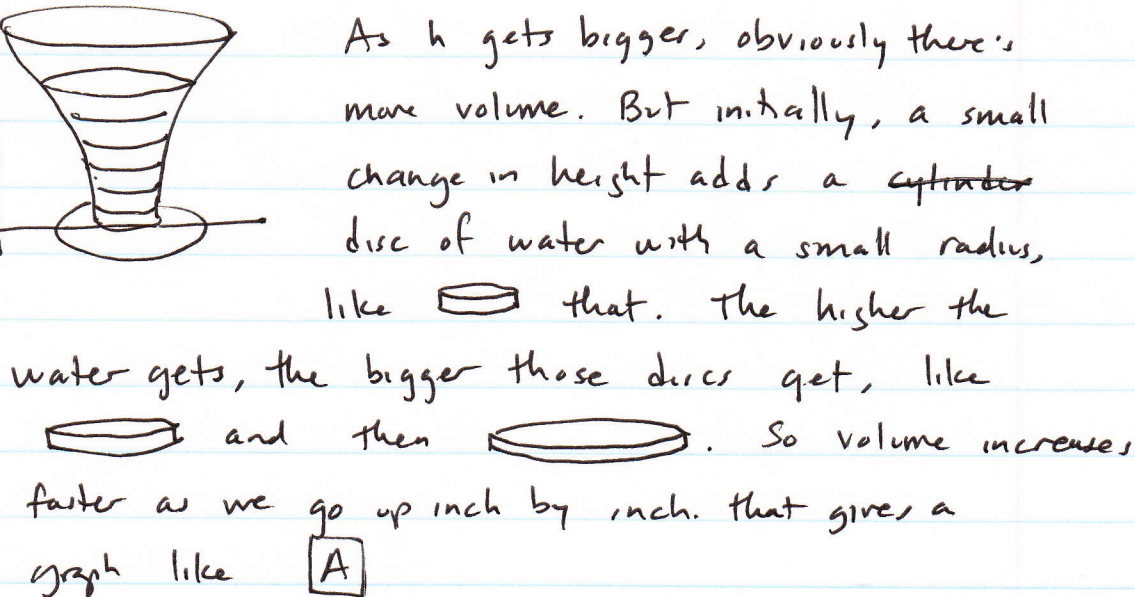 As h gets bigger, obviously there's
more volume. But initially, a small
change in height adds a cylinder
disc of water with a small radius,
like that. The higher the
water gets, the bigger those discs get, like
and then . So volume increases
faster as we go up inch by inch. That gives a
graph like A